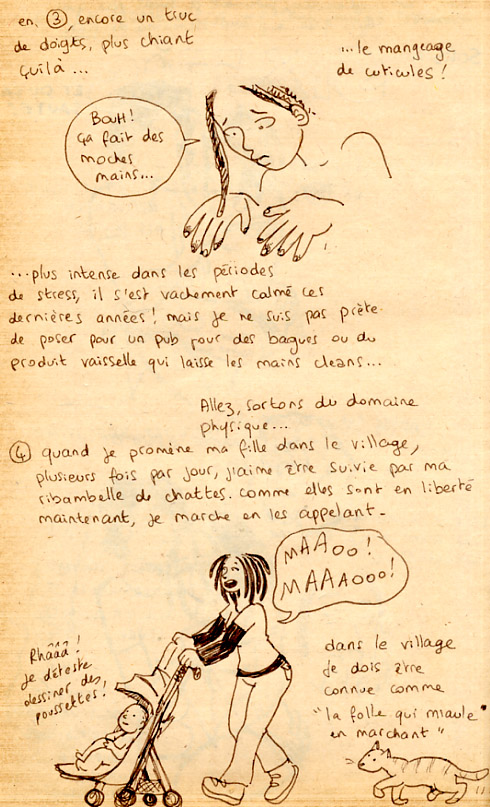 en ③, encore un truc
de doigts, plus chiant
çuilà...
...le mangeage
de cuticules !
BouH !
ça fait des
moches
mains...
...plus intense dans les périodes
de stress, il s'est vachement calmé ces
dernières années ! mais je ne suis pas prête
de poser pour un pub pour des bagues ou du
produit vaisselle qui laisse les mains cleans...
Allez, sortons du domaine
physique...
④ quand je promène ma fille dans le village,
plusieurs fois par jour, j'aime être suivie par ma
ribambelle de chattes. comme elles sont en liberté
maintenant, je marche en les appelant-
MAAoo !
MAAAooo !
Rhâââ !
je déteste
dessiner des
poussettes !
dans le village
je dois être
connue comme
"la folle qui miaule
en marchant"